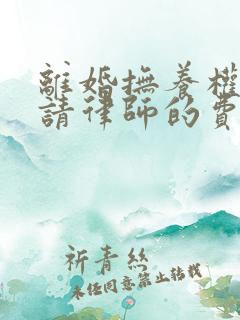 離婚撫養權
請律師的費
祈青絲
未经同意禁止转载